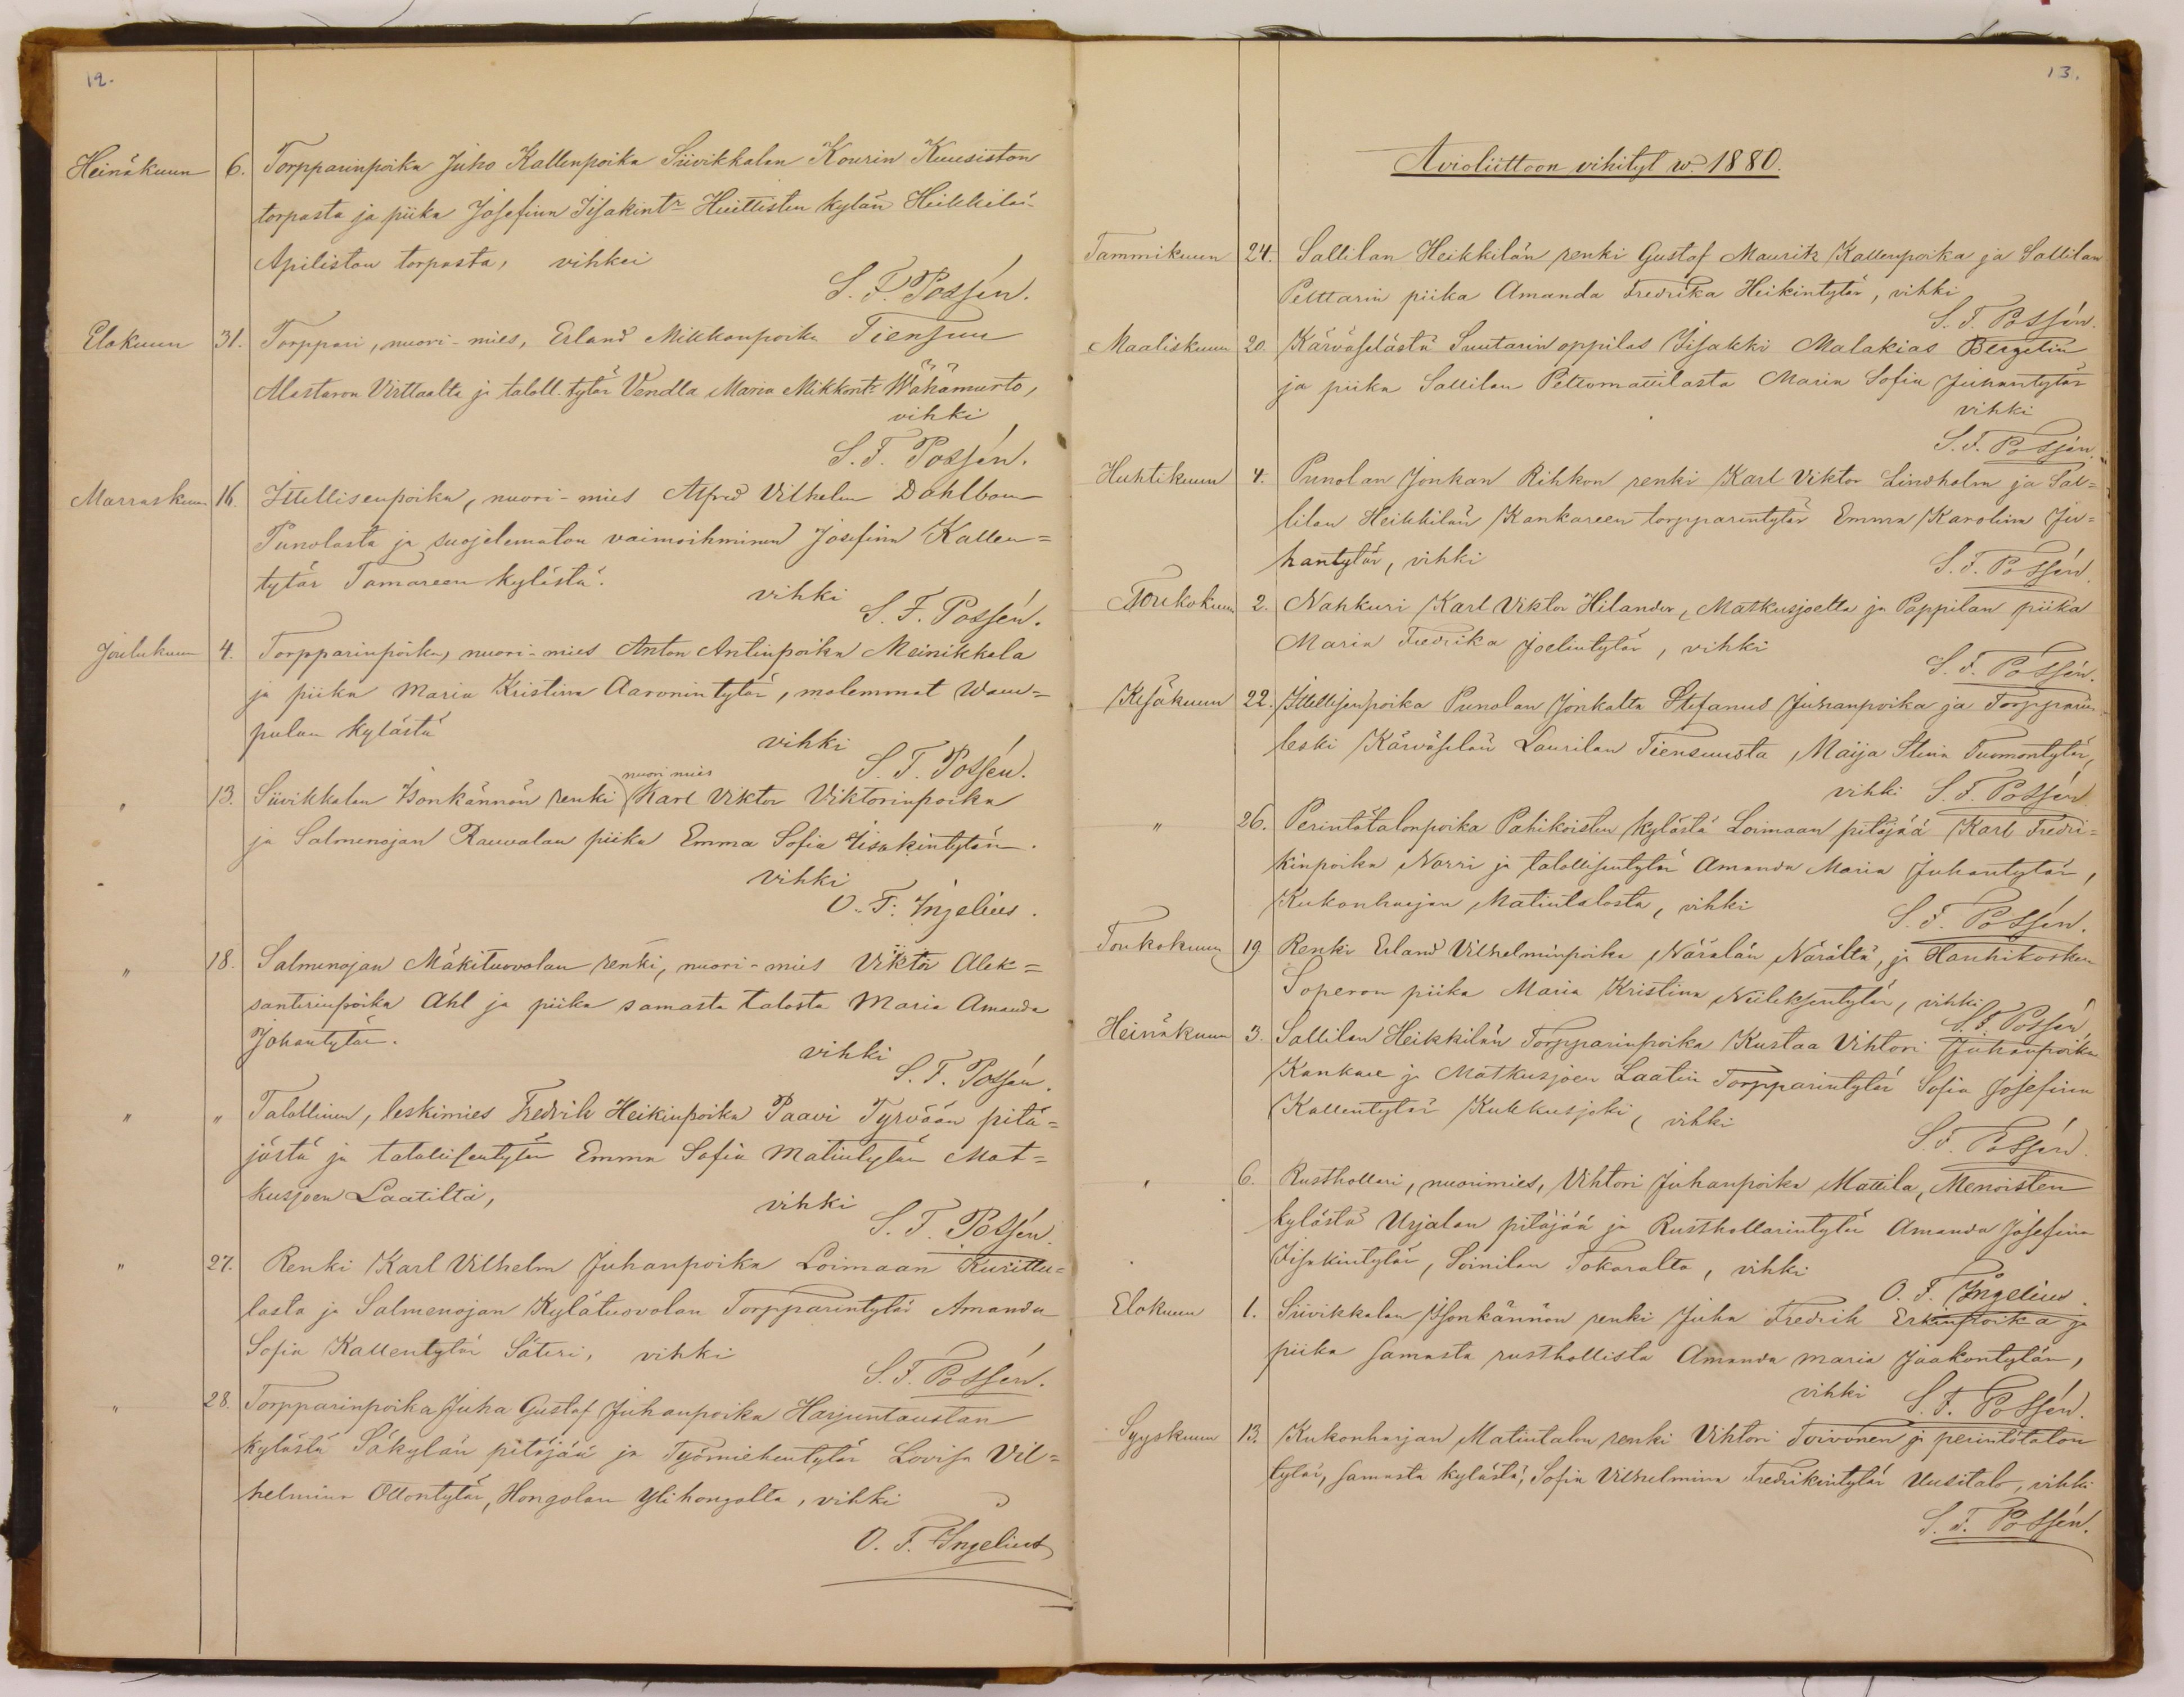 12.
Heinäkuun 6. Torpparinpoika Juho Kallenpoika Siivikkalan Kourin Kuusiston
torpasta ja piika Josefina Iisakintr Huittisten kylän Heikkilä
Apiliston torpasta, vihkei
S. F. Possén.
Elokuun 31. Torppari, nuori-mies, Erland Mikkonpoika Tiensuu
Alastaron Virttaalta ja taloll. tytär Vendla Maria Mikkontr Wähämurto,
vihki
S. F. Possén.
Marraskuun 16. Itellisenpoika, nuori-mies Alfred Vilhelm Dahlbom
Punolasta ja suojelematon vaimoihminen Josefina Kallen=
tytär Tamareen kylästä.
vihki
S. F. Possén.
Joulukuun 4. Torpparinpoika, nuori-mies Anton Antinpoika Meinikkala
ja piika Maria Kristina Aaronintytär, molemmat Wam=
pulan kylästä
vihki
S. F. Possén.
nuori mies
" 13. Siivikkalan Isonkännön renki Karl Viktor Viktorinpoika
ja Salmenojan Rauvalan piika Emma Sofia Iisakintytär.
vihki
O. F. Ingelius.
" 18. Salmenojan Mäkituovolan renki, nuori-mies Viktor Alek=
santerinpoika Ahl ja piika samasta talosta Maria Amanda
Johantytär.
vihki
S. F. Possén.
" " Talollinen, leskimies Fredrik Heikinpoika Paavi Tyrvään pitä=
jästä ja talollisentytär Emma Sofia Matintytär Mat=
kusjoen Laatilta,
vihki
S. F. Possén.
" 27. Renki Karl Vilhelm Juhanpoika Loimaan Kurittu=
lasta ja Salmenojan Kylätuovolan Torpparintytär Amanda
Sofia Kallentytär Säteri, vihki
S. F. Possén.
" 28. Torpparinpoika Juha Gustaf Juhanpoika Harjuntaustan
kylästä Säkylän pitäjää ja Työmiehentytär Lovisa Vil=
helmina Ottontytär, Hongolan Ylihongolta, vihki
O. F. Ingelius
13.
Avioliittoon vihityt w. 1880.
Tammikuun 24. Sallilan Heikkilän renki Gustaf Mauritz Kallenpoika ja Sallilan
Pelttarin piika Amanda Fredrika Heikintytär, vihki
S. F. Possén.
Maaliskuun 20. Kärväselästä Suutarin oppilas Iisakki Malakias Bergelin
ja piika Sallilan Peltomattilasta Maria Sofia Juhantytär
vihki
S. F. Possén.
Huhtikuun 4. Punolan Jonkan Rihkon renki Karl Viktor Lindholm ja Sal=
lilan Heikkilän Kankareen torpparintytär Emma Karolina Ju=
hantytär, vihki
S. F. Possén.
Toukokuun 2. Nahkuri Karl Viktor Hilander, Matkusjoelta ja Pappilan piika
Maria Fredrika Joelintytär, vihki
S. F. Possén.
Kesäkuun 22. Itellisenpoika Punolan Jonkalta Stefanus Juhanpoika ja Torpparin
leski Kärväselän Laurilan Tiensuusta, Maija Stina Tuomontytär,
vihki S. F. Possén
" 26. Perintötalonpoika Pahikoisten kylästä Loimaan pitäjää Karl Fredri=
kinpoika Norri ja talollisentytär Amanda Maria Juhantytär,
Kukonharjan Matintalosta, vihki
S. F. Possén.
Toukokuun 19 Renki Erland Vilhelminpoika Närälän Närältä, ja Hanhikosken
Soperon piika Maria Kristina Niileksentytär, vihki
S. F. Possén
Heinäkuun 3. Sallilan Heikkilän Torpparinpoika Kustaa Vihtori Juhanpoika
Kankare ja Matkusjoen Laatin Torpparintytär Sofia Josefina
Kallentytär Kukkusjoki, vihki
S. F. Possén.
" 6. Rusthollari, nuorimies, Vihtori Juhanpoika Mattila, Menoisten
kylästä Urjalan pitäjää ja Rusthollarintytär Amanda Josefina
Iisakintytär, Soinilan Tokaralta, vihki
O. F. Ingelius
Elokuun 1. Siivikkalan Isonkännön renki Juha Fredrik Erkinpoika ja
piika samasta rusthollista Amanda Maria Jaakontytär,
vihki S. F. Possén.
Syyskuun 13. Kukonharjan Matintalon renki Vihtori Toivonen ja perintötalon
tytär, samasta kylästä, Sofia Vilhelmina Fredrikintytär Uusitalo, vihki
S. F. Possén.